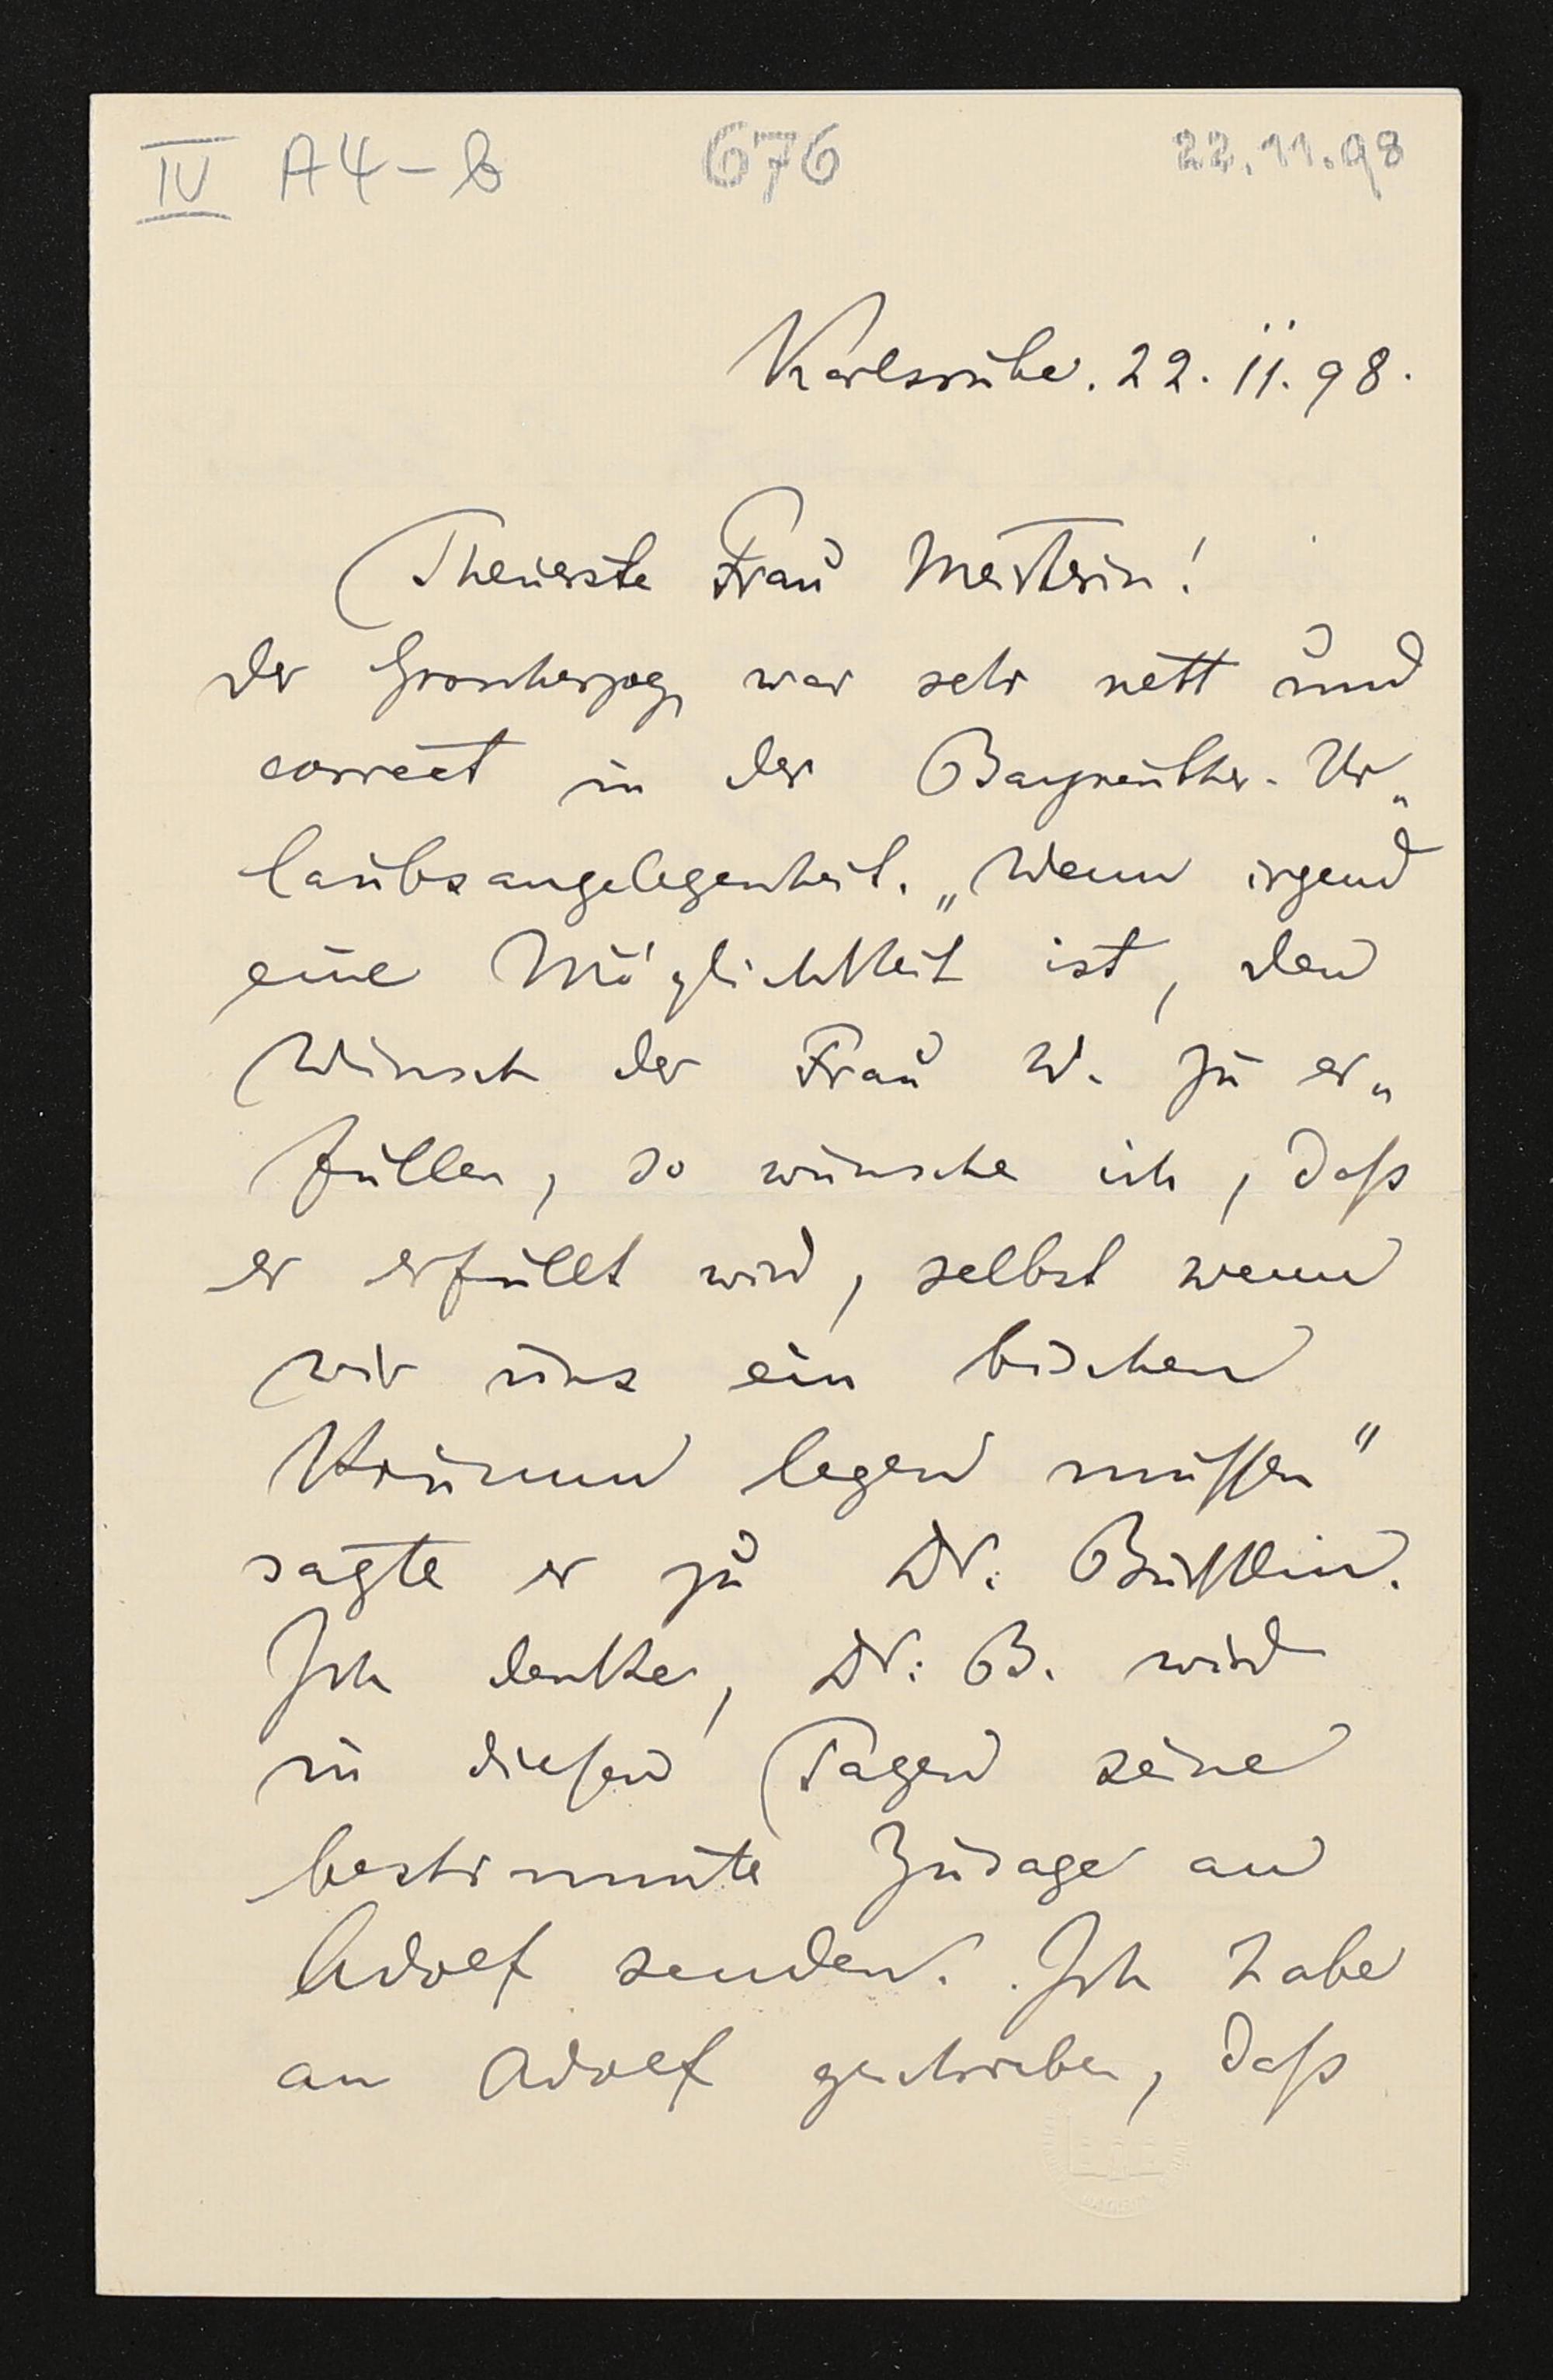 IV A4-b 676 22.11.98
Karlsruhe. 22. 11. 98.
Theuerste Frau Meisterin!
der Grossherzog war sehr nett und
correct in der Bayreuther-Ur„
laubsangelegenheit. „Wenn irgend
eine Möglichkeit ist, den
Wunsch der Frau W. zu er„
füllen, so wünsche ich, daß
er erfüllt wird, selbst wenn
wir uns ein bischen
Krumm legen müssen"
sagte er zu Dr. Bürklin.
Ich denke, Dr: B. wird
in diesen Tagen seine
bestimmte Zusage an
Adolf senden. Ich habe
an Adolf geschrieben, daß